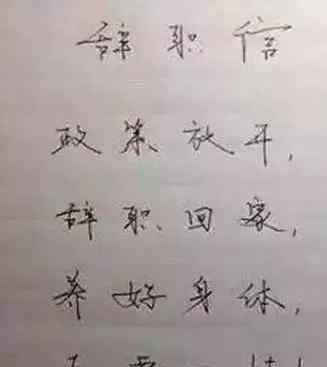 辞职信
政策放开，
辞职回家，
养好身体，